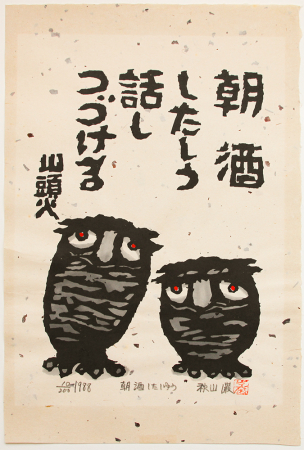 朝酒
したしう
話し
つづける
山頭火
1988 朝酒したしう 秋山巌